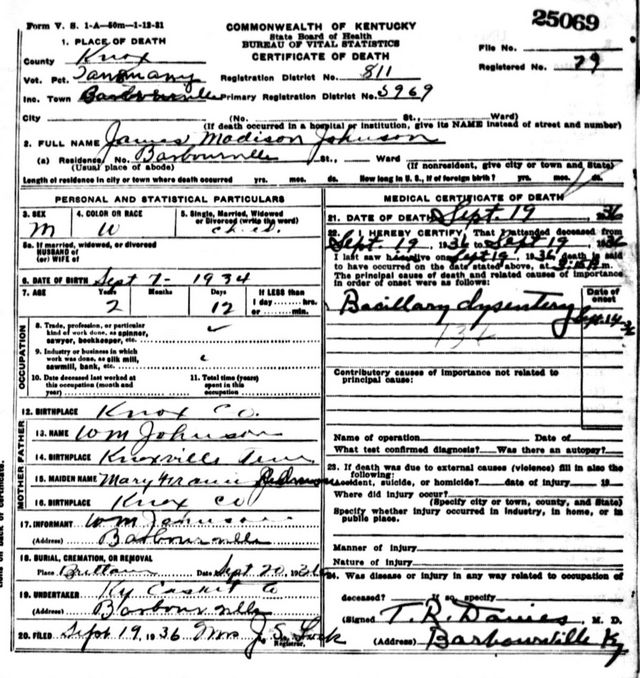 Form V. S. 1-A—50m—1-12-31
COMMONWEALTH OF KENTUCKY
25069
State Board of Health
BUREAU OF VITAL STATISTICS
CERTIFICATE OF DEATH
1. PLACE OF DEATH
File No.
County Knox
Registered No. 79
Vot. Pct. Registration District No. 811
Inc. Town Barbourville Primary Registration District No. 5969
City (No. St., Ward)
(If death occurred in a hospital or institution, give its NAME instead of street and number)
2. FULL NAME James Madison Johnson
(a) Residence, No. Barbourville St., Ward
(Usual place of abode) (If nonresident, give city or town and State)
Length of residence in city or town where death occurred yrs. mos. ds. How long in U. S., if of foreign birth? yrs. mos. ds.
PERSONAL AND STATISTICAL PARTICULARS
3. SEX 4. COLOR OR RACE 5. Single, Married, Widowed
or Divorced (write the word)
M W child
5a. If married, widowed, or divorced
HUSBAND of
(or) WIFE of
6. DATE OF BIRTH Sept 7 - 1934
7. AGE Years Months Days If LESS than
1 day hrs.
or min.
2 12
OCCUPATION
8. Trade, profession, or particular
kind of work done, as spinner,
sawyer, bookkeeper, etc.
9. Industry or business in which
work was done, as silk mill,
sawmill, bank, etc.
10. Date deceased last worked at
this occupation (month and
year)
11. Total time (years)
spent in this
occupation
12. BIRTHPLACE Knox Co.
FATHER
13. NAME Wm Johnson
14. BIRTHPLACE Knoxville Tenn
MOTHER
15. MAIDEN NAME Mary
16. BIRTHPLACE Knox Co
17. INFORMANT Wm Johnson
(Address) Barbourville
18. BURIAL, CREMATION, OR REMOVAL
Place Date Sept 20, 1936
19. UNDERTAKER Ky Casket Co
(Address) Barbourville
20. FILED Sept 19 1936 Mrs J. S. Lock
Registrar.
MEDICAL CERTIFICATE OF DEATH
21. DATE OF DEATH Sept. 19 36
22. I HEREBY CERTIFY, That I attended deceased from
Sept. 19, 1936 to Sept 19, 1936
I last saw h alive on Sept 19, 1936, death is said
to have occurred on the date stated above, at m.
The principal cause of death and related causes of importance
in order of onset were as follows:
Date of
onset
Basillary dysentery Sept. 14
Contributory causes of importance not related to
principal cause:
Name of operation Date of
What test confirmed diagnosis? Was there an autopsy?
23. If death was due to external causes (violence) fill in also the
following:
Accident, suicide, or homicide? date of injury 19
Where did injury occur?
(Specify city or town, county, and State)
Specify whether injury occurred in industry, in home, or in
public place.
Manner of injury
Nature of injury
24. Was disease or injury in any way related to occupation of
deceased? If so, specify
(Signed T. R. Davies, M. D.
(Address) Barbourville Ky